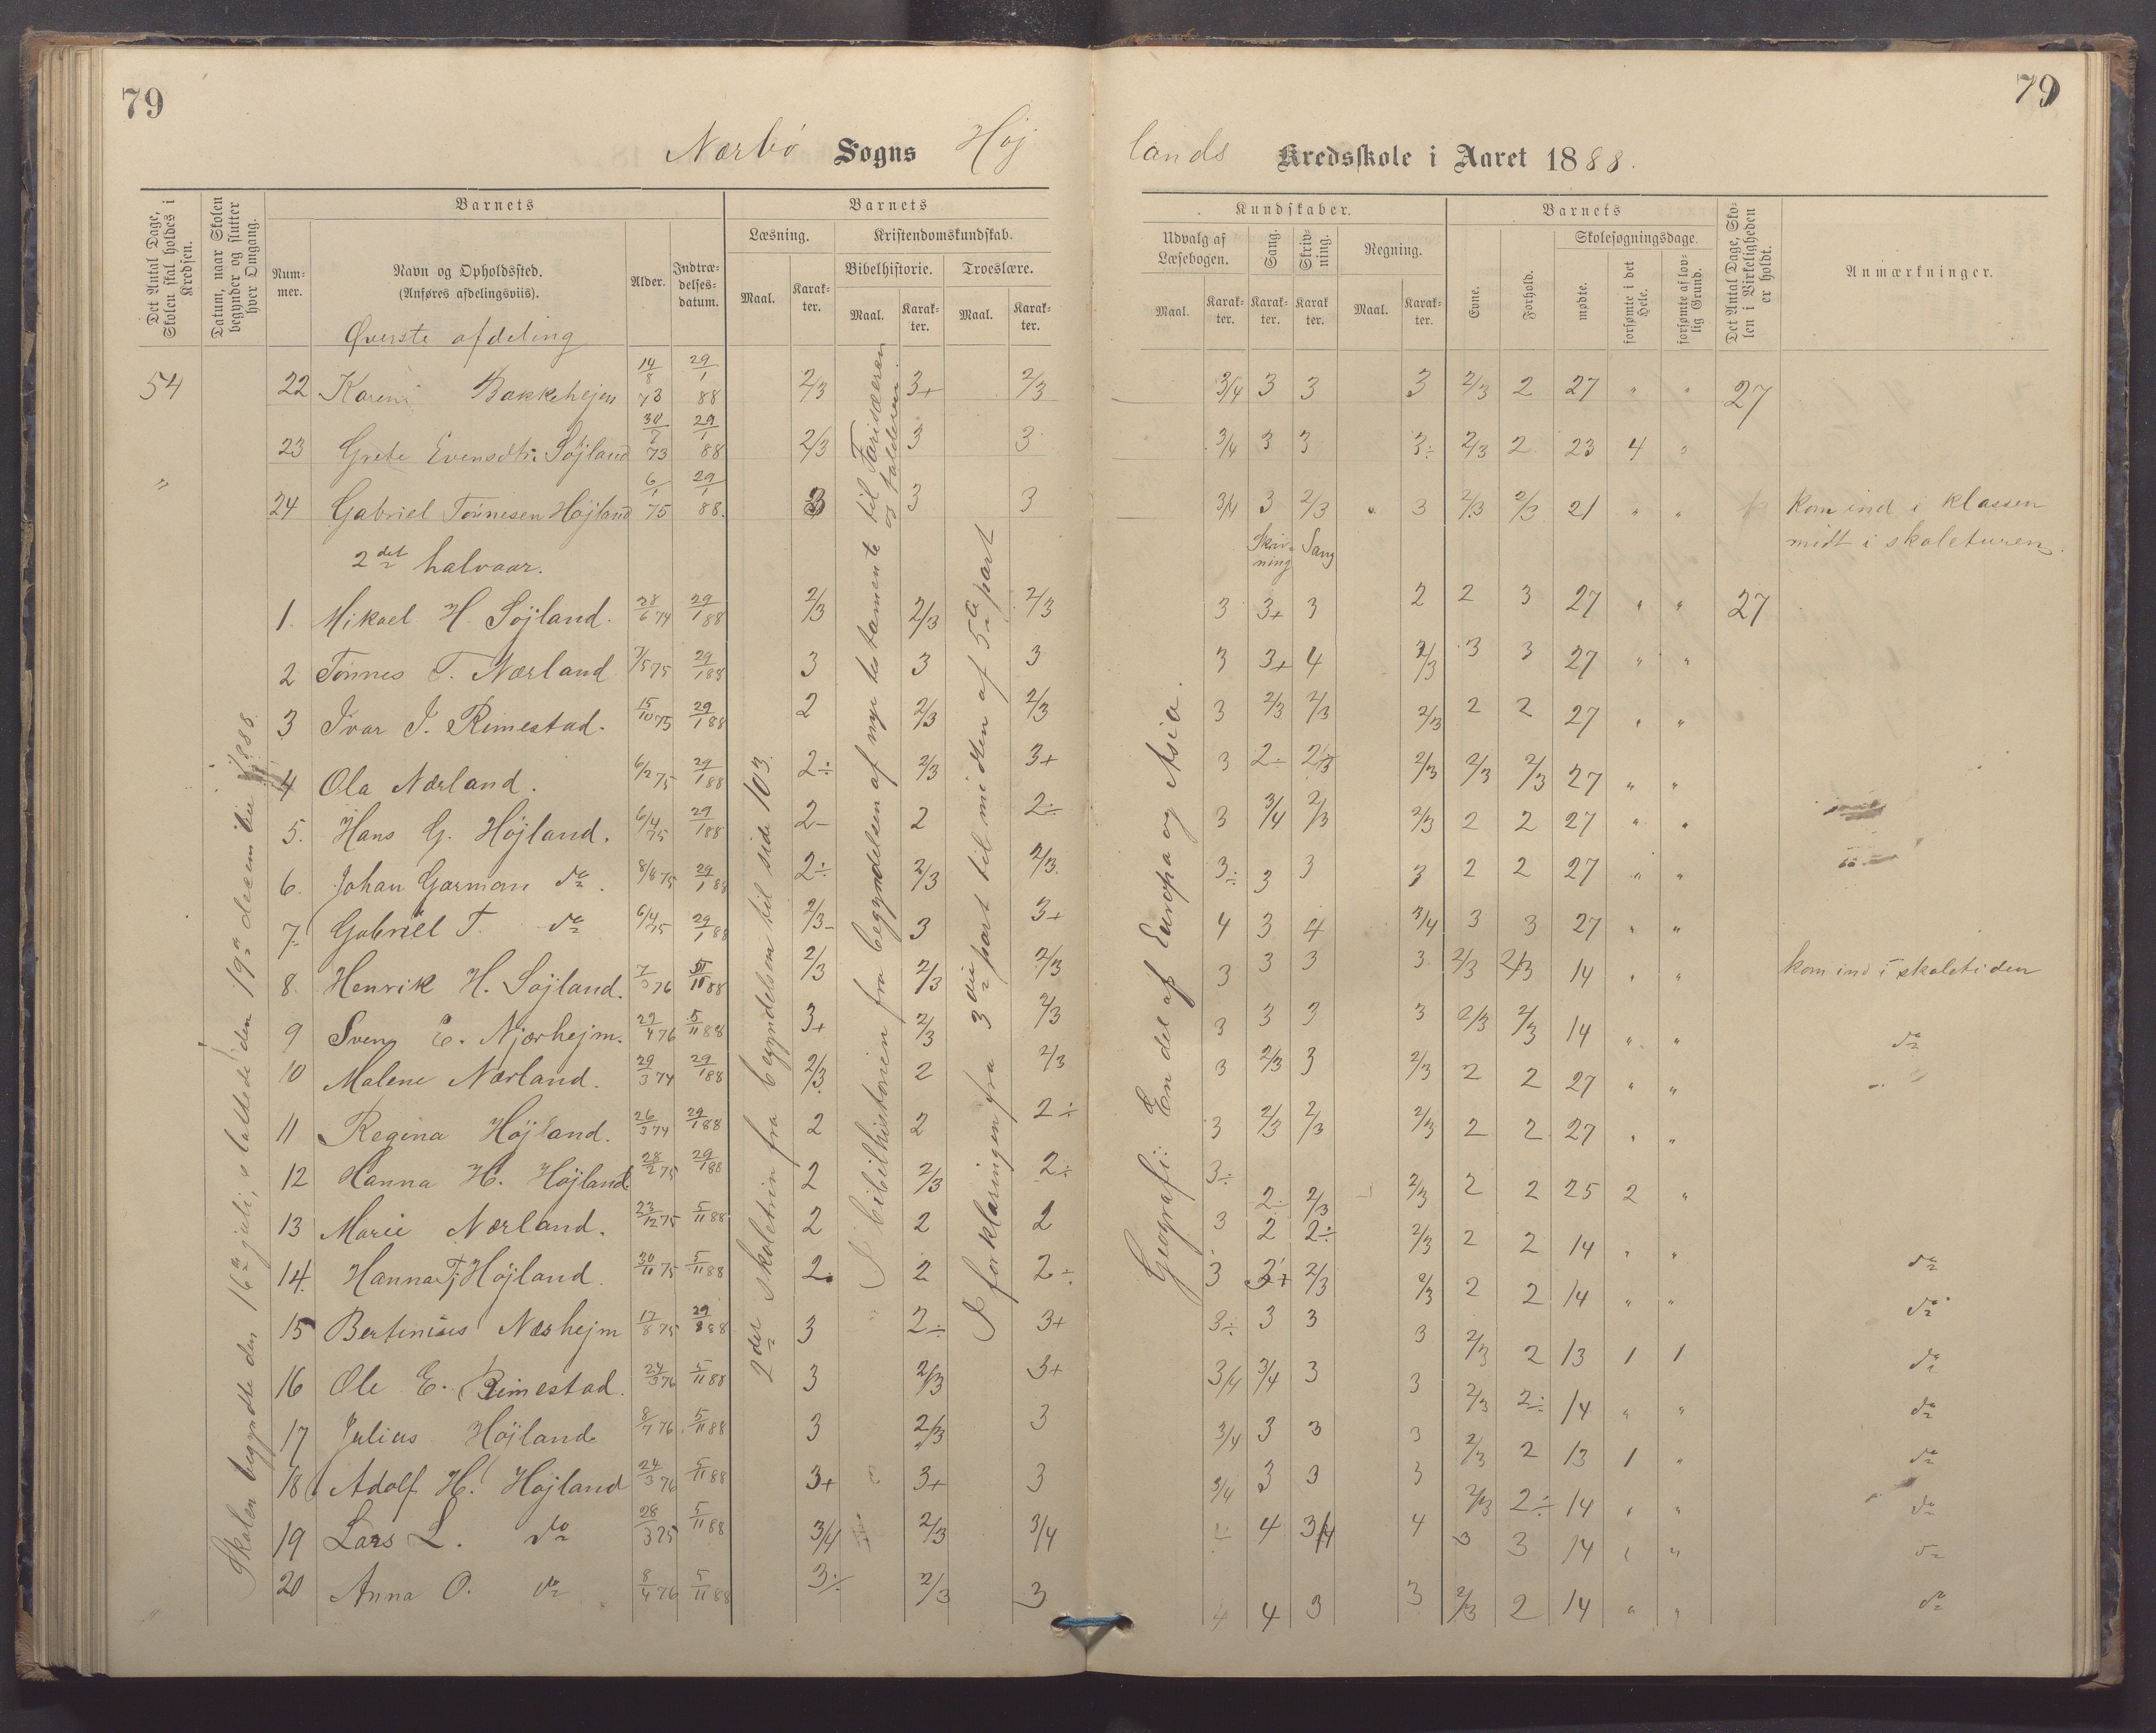 79
79
Nærbø Sogns Høj
lands Kredsskole i Aaret 1888.
Det Antal Dage, Skolen skal holdes i Kredsen.
Datum, naar Skolen begynder og slutter hver Omgang.
Barnets
Nummer.
Navn og Opholdssted.
(Anføres afdelingsviis).
Alder.
Indtrædelsesdatum.
Barnets
Læsning.
Maal.
Karakter.
Kristendomskundskab.
Bibelhistorie.
Maal.
Karakter.
Troeslære.
Maal.
Karakter.
Kundskaber.
Udvalg af Læsebogen.
Maal.
Karakter.
Sang.
Karakter.
Skrivning.
Karakter.
Regning.
Maal.
Karakter.
Barnets
Evne.
Forhold.
Skolesøgningsdage.
mødte.
forsømte i det Hele.
forsømte af lovlig Grund.
Det Antal Dage, Skolen i Virkeligheden er holdt.
Anmærkninger.
Øverste afdeling
54 22 Karen Bakkehejen 14/8 73 29/1 88 2/3 3+ 2/3 3/4 3 3 3 2/3 2 27 " " 27
23 Grete Evensdtr. Søjland 30/7 73 29/1 88 2/3 3 3 3/4 3 3 3÷ 2/3 2 23 4 "
" 24 Gabriel Tønnesen Højland 6/1 75 29/1 88. 3 3 3 3/4 3 2/3 3 2/3 2/3 21 " " kom ind i klassen
midt i skoleturen.
2det halvaar.
Skrivning Sang
1. Mikael H. Søjland. 28/6 74 29/1 88 2/3 2/3 2/3 3 3+ 3 2 2 3 27 " " 27
2 Tønnes T. Nærland 7/5 75 29/1 88 3 3 3 3 3+ 4 2/3 3 3 27 " "
3 Ivar J. Rimestad. 15/10 75 29/1 88 2 2/3 2/3 3 2/3 2/3 2/3 2 2 27 " "
4 Ola Nærland. 6/2 75 29/1 88 2÷ 2/3 3+ 3 2÷ 2/3 2/3 2/3 2/3 27 " "
5. Hans G. Højland. 6/4 75 29/1 88 2- 2 2÷ 3 3/4 2/3 2/3 2 2 27 " "
6. Johan Garman do. 8/8 75 29/1 88 2÷ 2/3 2/3. 3÷ 3 3 3 2 2 27 " "
7. Gabriel T. do 6/4 75 29/1 88 2/3- 3 3+ 4 3 4 3/4 3 3 27 " "
8. Henrik H. Søjland. 7/3 76 5/11 88 2/3 2/3 2/3 3 3 3 3 2/3 2/3 14 " " kom ind i skoletiden
9 Sven E. Njærhejm. 29/4 76 5/11 88 3+ 2/3 2/3 3 3 3 3 2/3 2/3 14 " " do
10 Malene Nærland. 29/3 74 29/1 88 2/3 2 2/3 3 2/3 3 2/3 2 2 27 " "
11 Regina Højland. 26/3 74 29/1 88 2 2 2÷ 3 2/3 2/3 2/3 2 2 27 " "
12 Hanna H. Højland 28/2 75 29/1 88 2 2/3 2÷ 3÷ 2÷ 2/3 2/3 2 2 25 2 "
13 Marie Nærland. 23/12 75 5/11 88 2 2 2 3 2 2÷ 2/3 2 2 14 " " do
14. Hanna Tj Højland. 30/11 75 5/11 88 2 2 2÷ 3 3+ 2/3 2/3 2 2 14 " " do
15 Bertinius Nærhejm 17/8 75 29/8 88 3 2÷ 3+ 3÷ 3 3 3 2/3 2 13 1 1 do
16 Ole E. Rimestad. 24/3 76 5/11 88 3 2/3 3+ 3/4 3/4 3 3 2/3 2÷ 14 " " do
17 Julius Højland 8/7 76 5/11 88 3 2/3 3 3/4 3 3 3 2/3 2 13 1 " do
18 Adolf H. Højland 24/3 76 5/11 88 3+ 3+ 3 3/4 3 3 3 2/3 2÷ 14 " " do
19 Lars L. do 28/3 75 5/11 88 3/4 2/3 3/4 4 3/4 4 3 3 14 " " do
20 Anna O. do 8/4 76 5/11 88 3÷ 2/3 3 4 4 3 3 2/3 2 14 " " do
Skolen begyndte den 16de juli, sluttede den 19de december 1888.
2det skoletrin fra begyndelsen til side 103.
I bibelhistorien fra begyndelsen af nye testamente til Farisæeren
og tolderen.
I forklaringen fra 3die part til midten af 5te part
Geografi: En del af Europa og Asia.